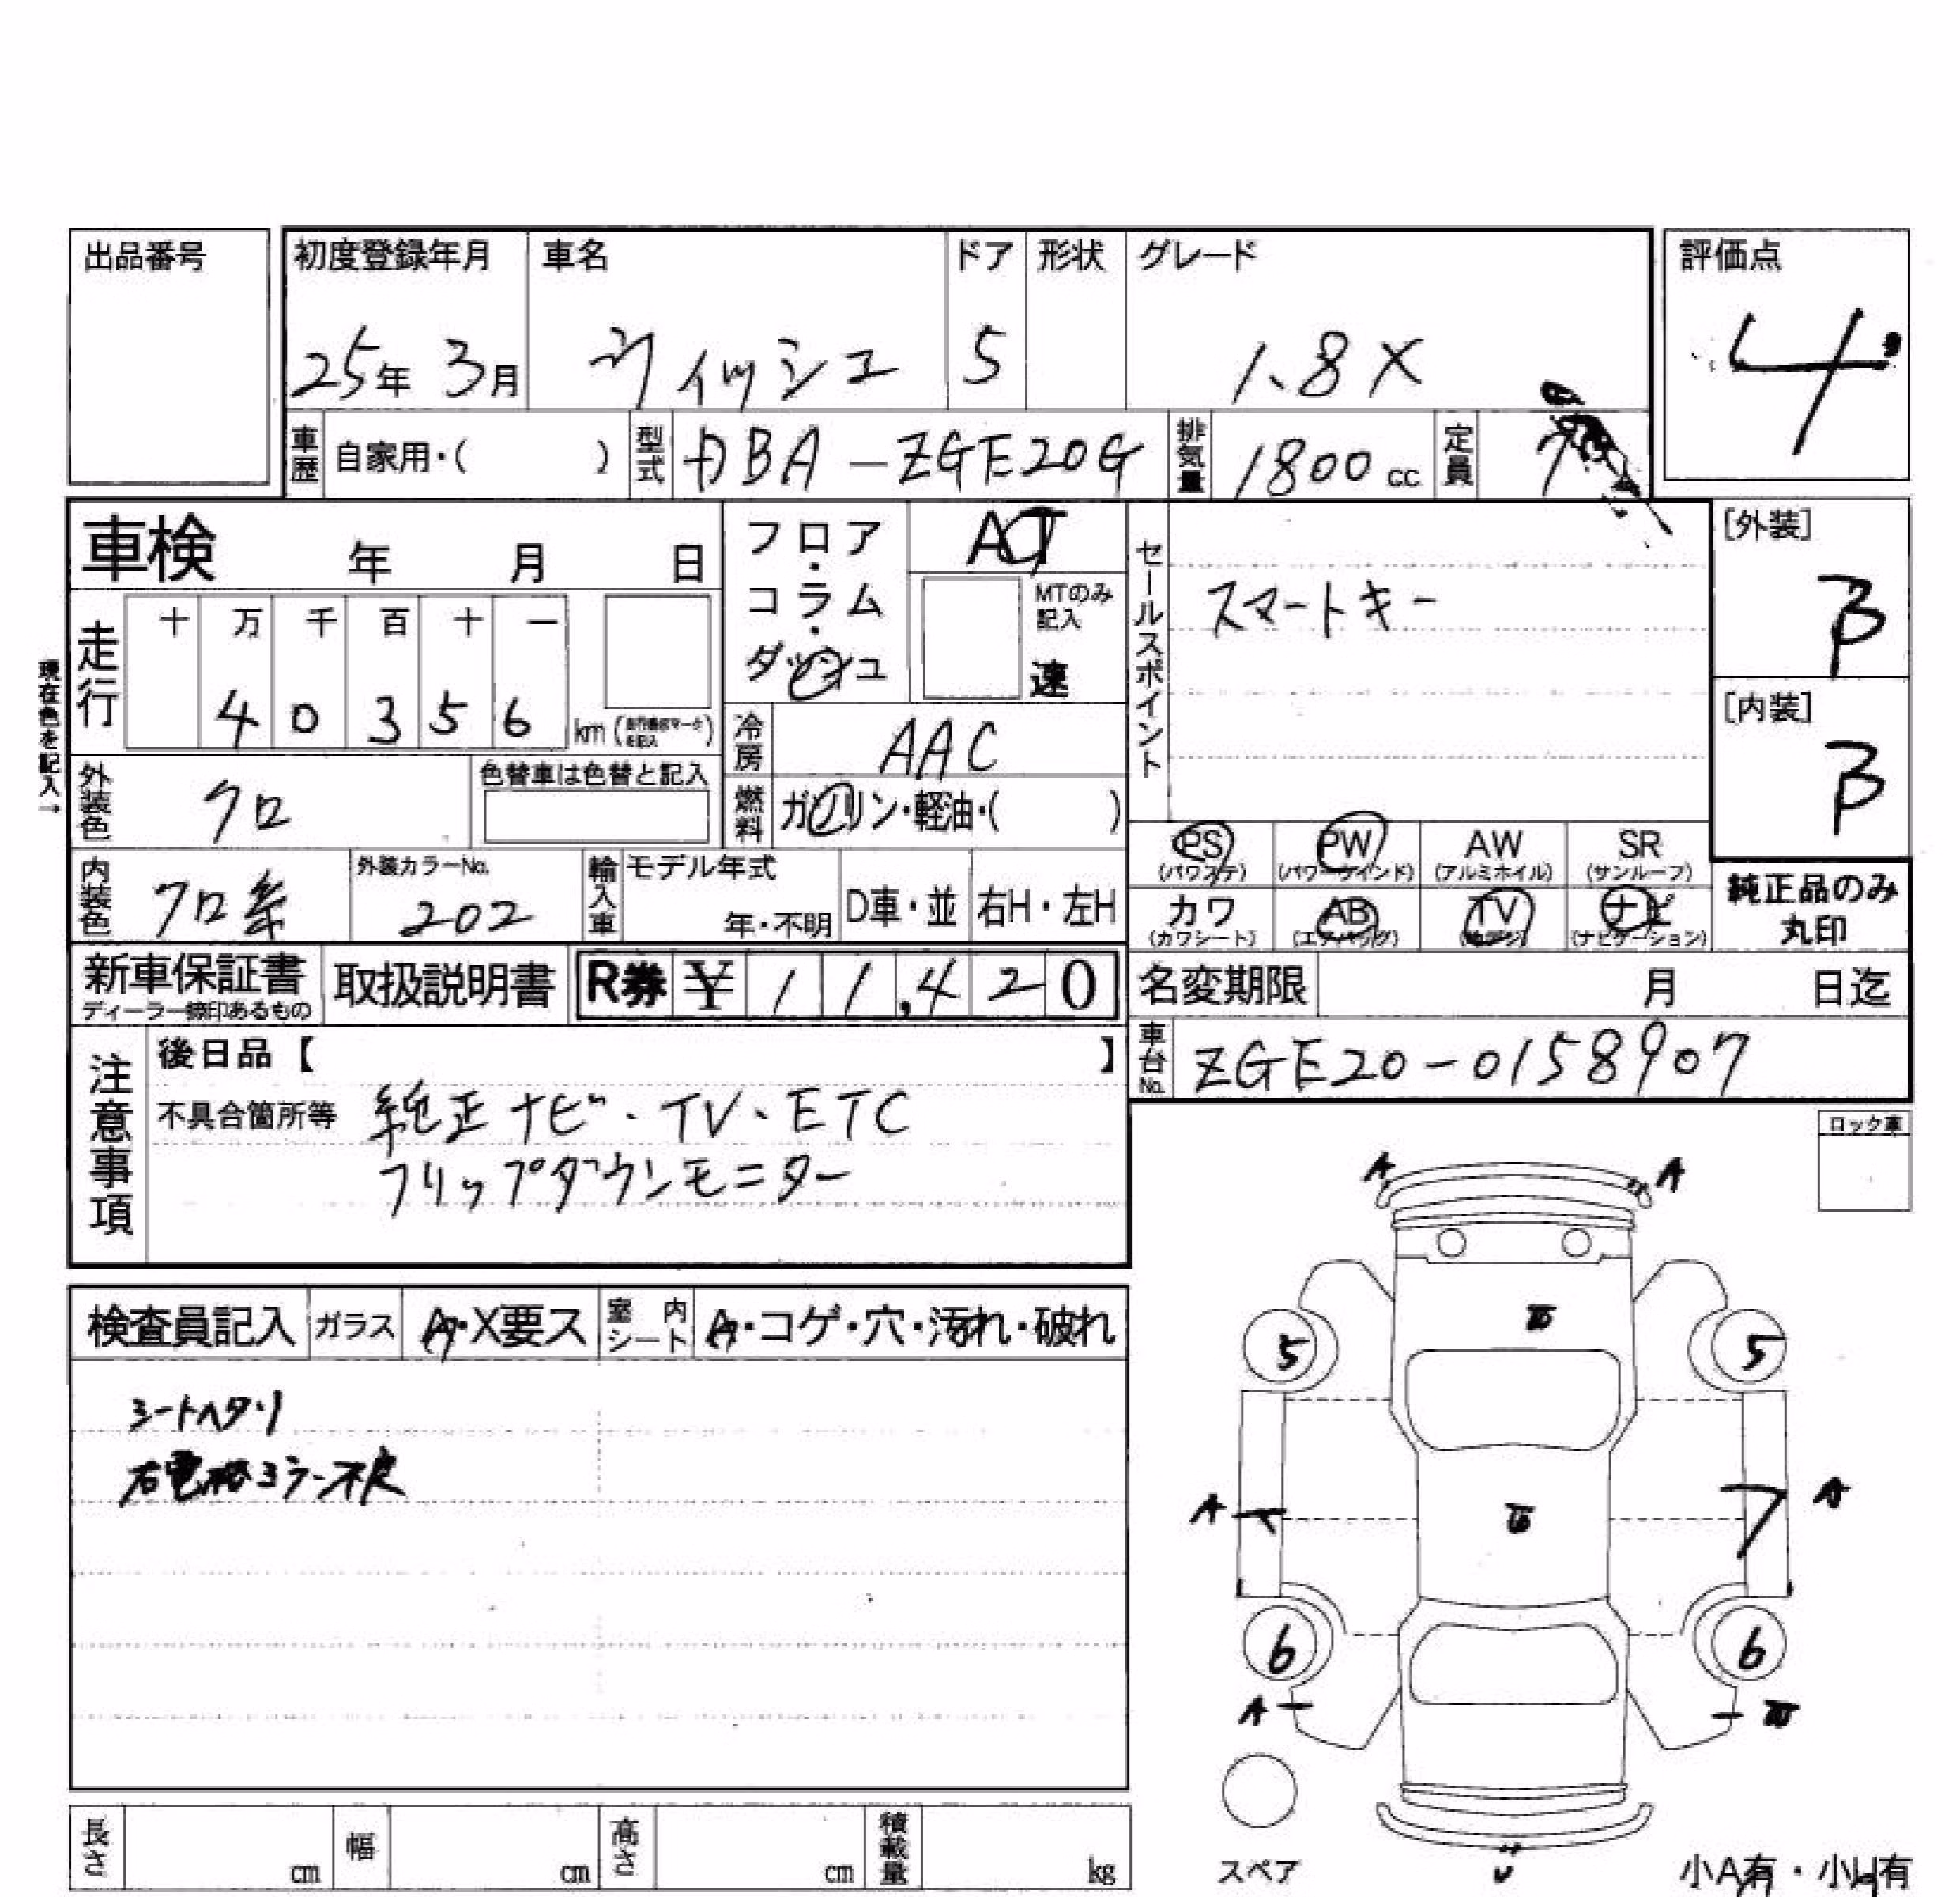 出品番号
初度登録年月 車名 ドア 形状 グレード 評価点
25年 3月 ウィッシュ 5 1.8X 4
車歴 自家用・( ) 型式 DBA-ZGE20G 排気量 1800 cc 定員 7
車検 年 月 日
フロア・コラム・ダッシュ AT
MTのみ記入 速
セールスポイント スマートキー
[外装] B
[内装] B
現在色を記入→
走行 十 万 千 百 十 一
4 0 3 5 6 km
冷房 AAC
外装色 クロ 色替車は色替と記入
燃料 ガソリン・軽油・( )
内装色 クロ系 外装カラーNo. 202
輸入車 モデル年式 年・不明 D車・並 右H・左H
PS (パワステ) PW (パワーウインド) AW (アルミホイル) SR (サンルーフ)
カワ (カワシート) AB (エアバッグ) TV ナビ (ナビゲーション)
純正品のみ丸印
新車保証書 取扱説明書 R券 ¥11,420
名変期限 月 日迄
車台No. ZGE20-0158907
注意事項
後日品【 】
不具合箇所等 純正ナビ・TV・ETC
フリップダウンモニター
ロック車
検査員記入 ガラス A・X要ス 室内シート A・コゲ・穴・汚れ・破れ
シートヘタリ
右電格ミラー不良
A A
5 5
A A
6 6
A
スペア
小A有・小U有
長さ cm 幅 cm 高さ cm 積載量 kg